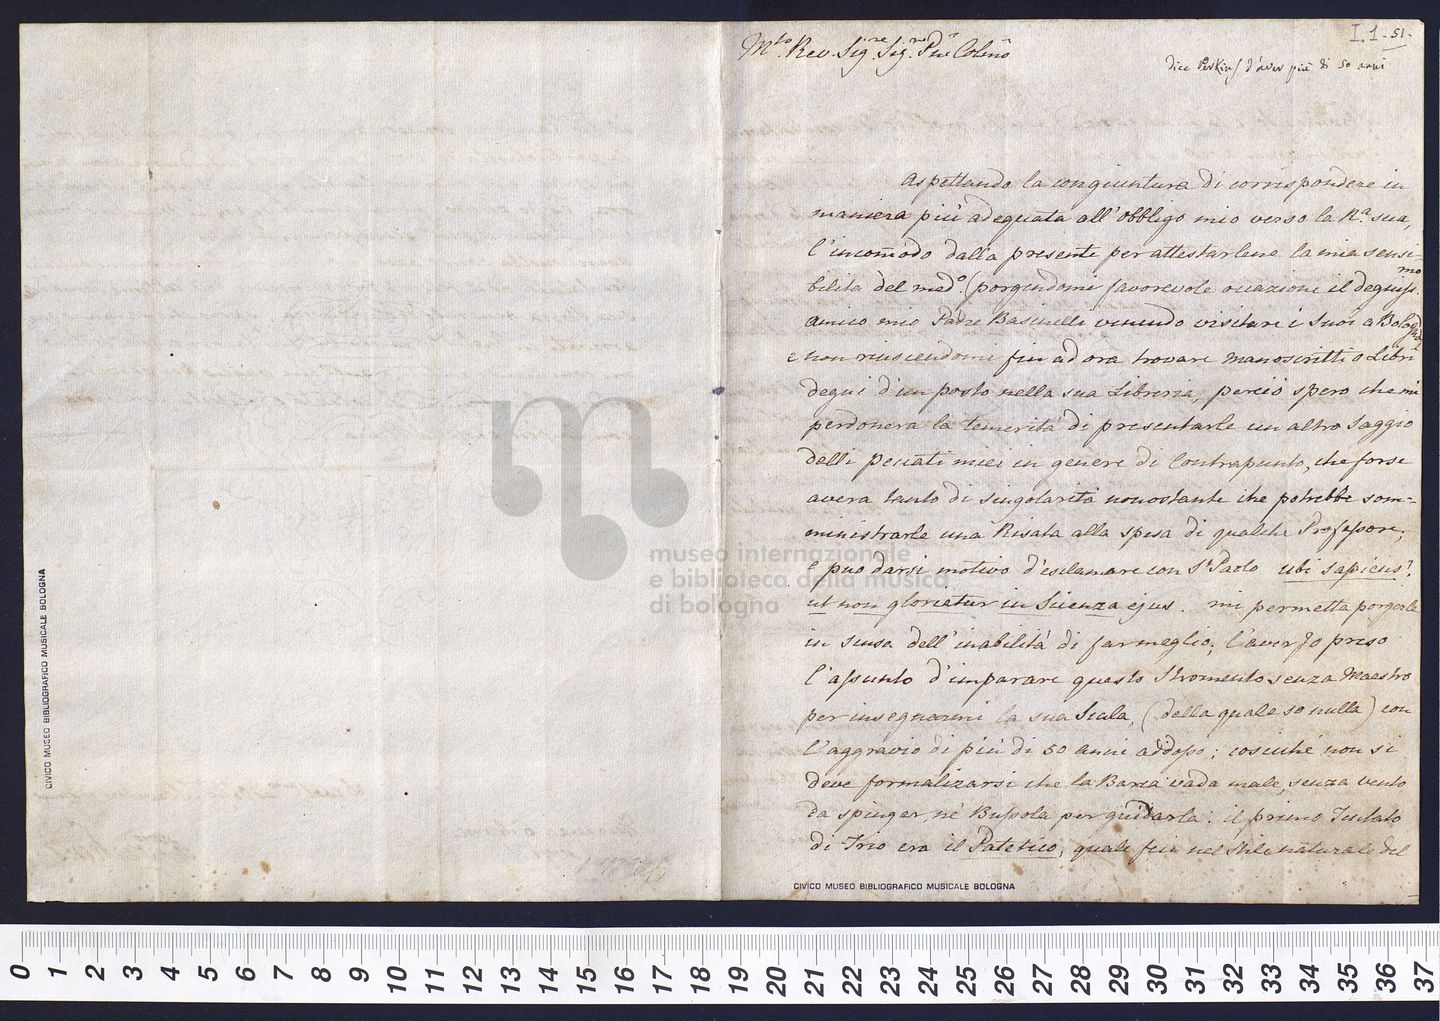 I.1-51-
Mto Rev. Sigre Sigre Pre Colmo
dice Perkins d'aver più di 50 anni
Aspettando la congiuntura di corrispondere in
maniera più adequata all'obbligo mio verso la Ra sua,
l'incommodo dalla presente per attestarlene la mia sensi-
bilita del medo. (porgendomi favorevole occazione il degniss.mo
amico mio Padre Bascielli venendo visitare i Suoi a Bologna
e non riuscendomi fin ad ora trovare manoscritti o Libri
degni d'un posto nella sua Libreria, perciò spero che mi
perdonera la temerità di presentarle un altro Saggio
delli peccati miei in genere di Contrapunto, che forse
avera tanto di singolarità nonostante che potrebbe som-
ministrarle una Risata alla spesa di qualche Professore,
e puo darsi motivo d'esclamare con St Paolo ubi sapiens?
ut non glorietur in Scienza ejus. mi permetta porgerle
in scusa dell'inabilità di far meglio, l'aver Jo preso
l'assunto d'imparare questo Stromento senza Maestro
per insegnarmi la sua Scala, (della quale so nulla) con
l'aggravio di più di 50 anni addosso; cosicché non si
deve formalizarsi che la Barca vada male, senza vento
da spinger, nè Bussola per guidarla: il primo
di Trio era il Patetico, quale fu nel Stile naturale del
museo internazionale
e biblioteca della musica
di bologna
CIVICO MUSEO BIBLIOGRAFICO MUSICALE BOLOGNA
CIVICO MUSEO BIBLIOGRAFICO MUSICALE BOLOGNA
0 1 2 3 4 5 6 7 8 9 10 11 12 13 14 15 16 17 18 19 20 21 22 23 24 25 26 27 28 29 30 31 32 33 34 35 36 37